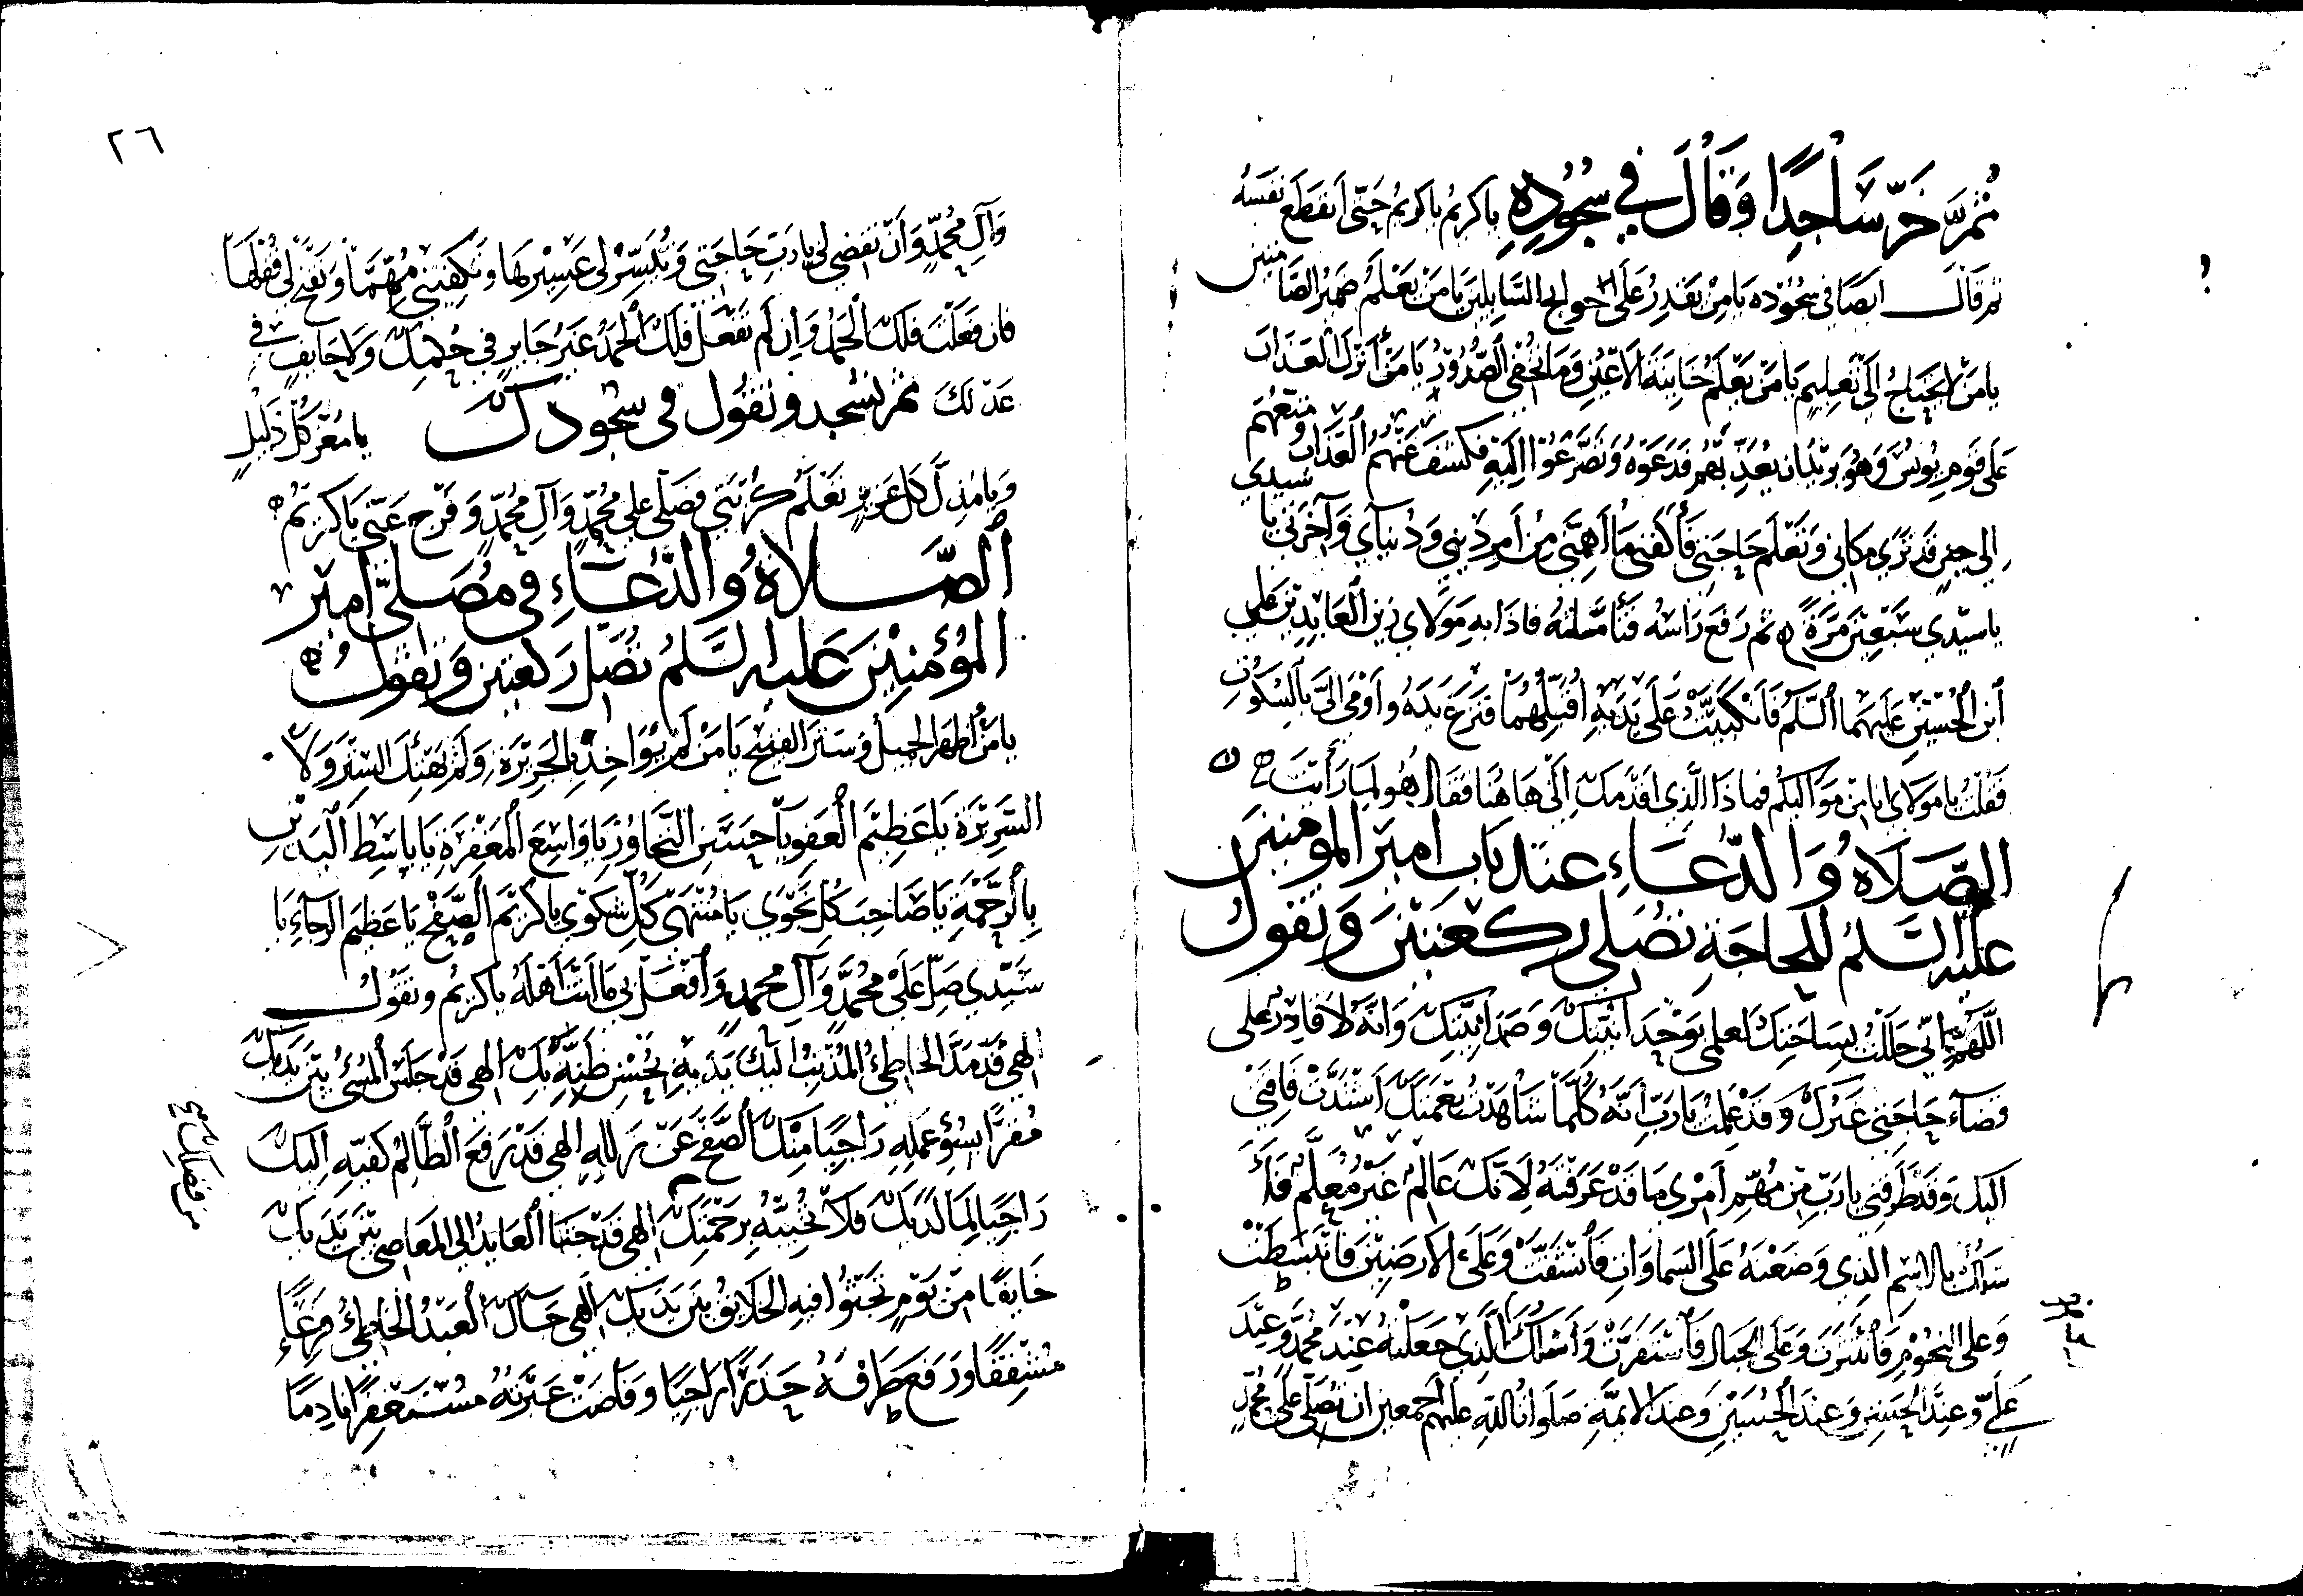 ثم خر ساجدا وقال في سجوده يا كريم يا كريم حتى انقطع نفسه
ثم قال ايضا في سجوده يا من يقدر على حوايج السايلين يا من يعلم ضمير الصامتين
يا من لا يحتاج الى تعليم يا من يعلم خاينة الاعين وما تخفي الصدور يا من انزل العذاب
على قوم يونس وهو يريد ان يعذبهم فدعوه وتضرعوا اليه فكشف عنهم العذاب ومتعهم
الى حين قد ترى مكاني وتعلم حاجتي فاكفني ما اهمني من امر ديني ودنياي وآخرتي يا سيدي
يا سيدي سبعين مرة ثم رفع راسه فتأملته فاذا به مولاي زين العابدين علي
ابن الحسين عليهما السلم فانكببت على يديه اقبلهما فنزع يده واومى الي بالسكوت
فقلت يا مولاي انا من مواليكم فماذا الذي اقدمك الى هاهنا فقال هو لما رأيت
الصلاة والدعاء عند باب امير المومنين
عليه السلم للحاجة تصلي ركعتين وتقول
اللهم اني حللت بساحتك لعلمي بوحدانيتك وصمدانيتك وانه لا قادر على
قضاء حاجتي غيرك وقد علمت يا رب انه كلما شاهدت نعمتك اشتدت فاقتي
اليك وقد طرقني يا رب من مهم امري ما قد عرفته لانك عالم غير معلم فاسـ
ـئلك بالاسم الذي وضعته على السماوات فانشقت وعلى الارضين فانبسطت
وعلى النجوم فانتثرت وعلى الجبال فاستقرت واسئلك بالاسم الذي جعلته عند محمد وعند
علي وعند الحسن وعند الحسين وعند الائمة صلوات الله عليهم اجمعين ان تصلي على محمد
٢٦
وآل محمد وان تقضي لي يا رب حاجتي وتيسر لي عسيرها وتكفيني مهمها وتفتح لي قفلها
فان فعلت فلك الحمد وان لم تفعل فلك الحمد غير جاير في حكمك ولا حايف في
عدلك ثم تسجد وتقول في سجودك يا معز كل ذليل
ويا مذل كل عزيز تعلم كربتي فصلى على محمد وآل محمد وفرج عني يا كريم
الصلاة والدعاء في مصلى امير
المؤمنين عليه السلم تصل ركعتين وتقول
يا من أظهر الجميل وستر القبيح يا من لم يؤاخذ بالجريرة ولم يهتك الستر ولا
السريرة يا عظيم العفو يا حسن التجاوز يا واسع المغفرة يا باسط اليدين
بالرحمة يا صاحب كل نجوى يا منتهى كل شكوى يا كريم الصفح يا عظيم الرجاء يا
سيدي صل على محمد وآل محمد وافعل بي ما انت اهله يا كريم وتقول
الهي قد مد الخاطئ المذنب اليك يديه بحسن ظنه بك الهي قد جلس المسئ بين يديك
مقرا بسوء عمله راجيا منك الصفح عن زلله الهي قد رفع الظالم كفيه اليك
راجيا لما لديك فلا تخيبه برحمتك الهي قد جثا العايد الى المعاصي بين يديك
خايفا من يوم تجثوا فيه الخلايق بين يديك الهي جاءك العبد الخاطئ فزعا
مشفقا ورفع طرفه حذرا راجيا وفاضت عبرته مستغفرا نادما
من فضلك